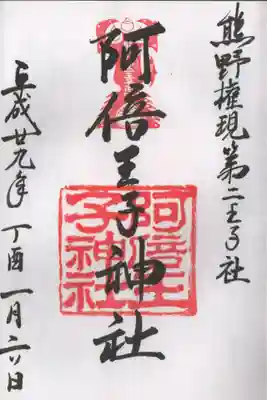 熊野権現第二王子社
阿倍王子神社
阿倍王子神社
平成廿九年 丁酉 一月二六日